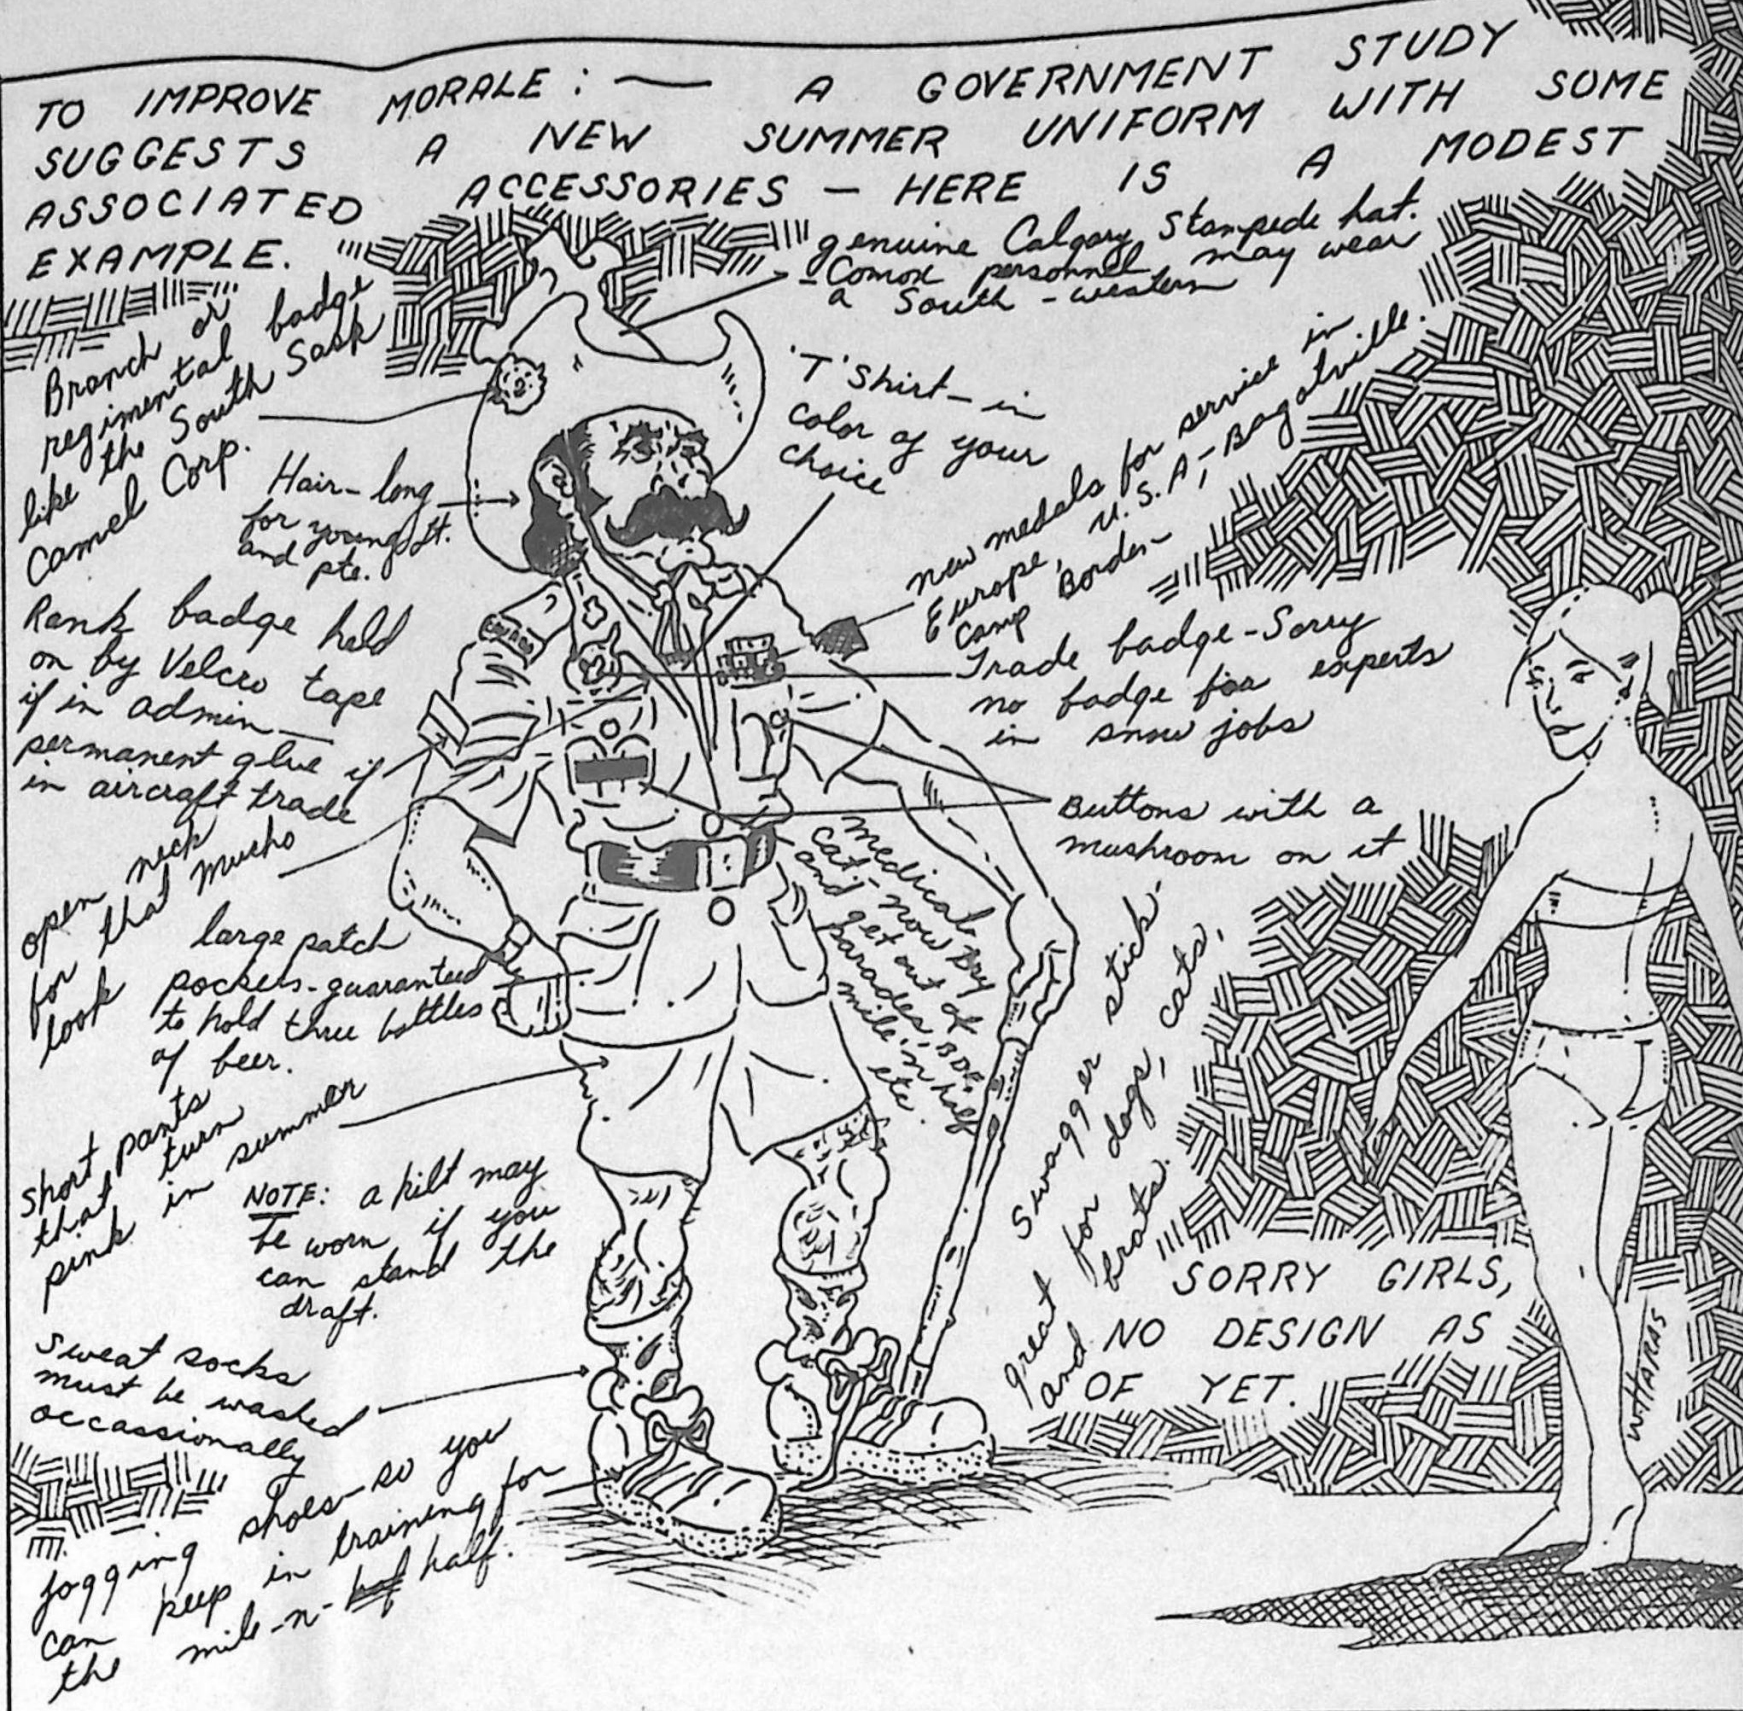 TO IMPROVE MORALE : — A GOVERNMENT STUDY
SUGGESTS A NEW SUMMER UNIFORM WITH SOME
ASSOCIATED ACCESSORIES — HERE IS A MODEST
EXAMPLE.
genuine Calgary Stampede hat.
- Comox personnel may wear
a South - western
Branch or
regimental badge
like the South Sask
Camel Corp.
'T' Shirt — in
color of your
choice
Hair — long
for young Lt.
and pte.
new medals for service in
Europe, U.S.A, - Bagotville.
Camp Borden
Rank badge held
on by Velcro tape
if in admin —
permanent glue if
in aircraft trade
CANADA
Trade badge - Sorry
no badge for experts
in snow jobs
Buttons with a
mushroom on it
open neck
for that mucho
look
medical
cat. - now try
and get out of
parades, BDF,
mile 'n half
etc.
large patch
pockets - guaranteed
to hold three bottles
of beer.
Swagger stick -
great for dogs, cats,
and brats.
short pants
that turn
pink in summer
NOTE: a kilt may
be worn if you
can stand the
draft.
SORRY GIRLS,
NO DESIGN AS
OF YET.
Sweat socks
must be washed
occassionally
jogging shoes - so you
can keep in training for
the mile - n - half.
W HARAS